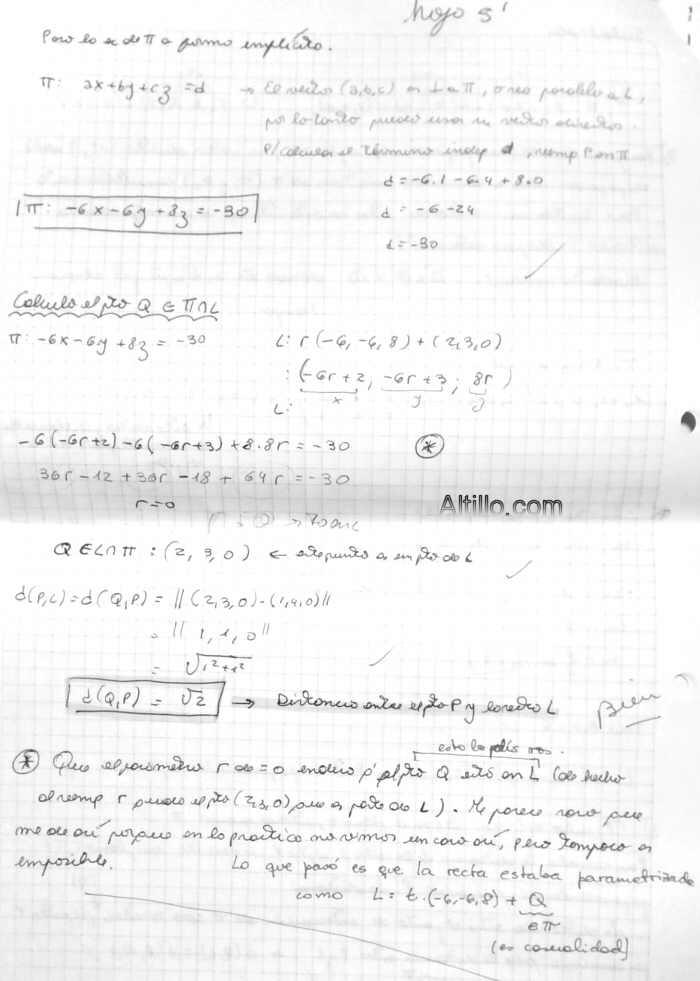 hoja 5'
Paso la ec de π a forma implícita.
π: ax+by+cz=d → El vector (a,b,c) es ⊥ a π, o sea paralelo a L,
por lo tanto puedo usar su vector director.
P/calcular el término indep d, reemp P en π
d = -6.1 - 6.4 + 8.0
π: -6x-6y+8z = -30
d = -6 -24
d = -30
Calculo el pto Q ∈ π∩L
π: -6x-6y+8z = -30
L: r(-6,-6,8)+(2,3,0)
: (-6r+2, -6r+3; 8r)
L: x y z
-6(-6r+2)-6(-6r+3)+8.8r = -30 *
36r-12+36r-18+64r = -30
r=0
Altillo.com
Q ∈ L∩π : (2, 3, 0) ← este punto es un pto de L
d(P,L)=d(Q,P) = ||(2,3,0)-(1,4,0)||
= || 1, 1, 0 ||
= √1²+1²
d(Q,P) = √2 → Distancia entre el pto P y la recta L
Bien
esto lo pedís vos.
* Que el parámetro r de=0 indica q' el pto Q está en L (de hecho
al reemp r puedo el pto (2,3,0) que es pto de L). Me parece raro que
me de así porque en la práctica no vimos un caso así, pero tampoco es
imposible. Lo que pasó es que la recta estaba parametrizada
como L = t.(-6,-6,8) + Q
∈ π
(es casualidad)